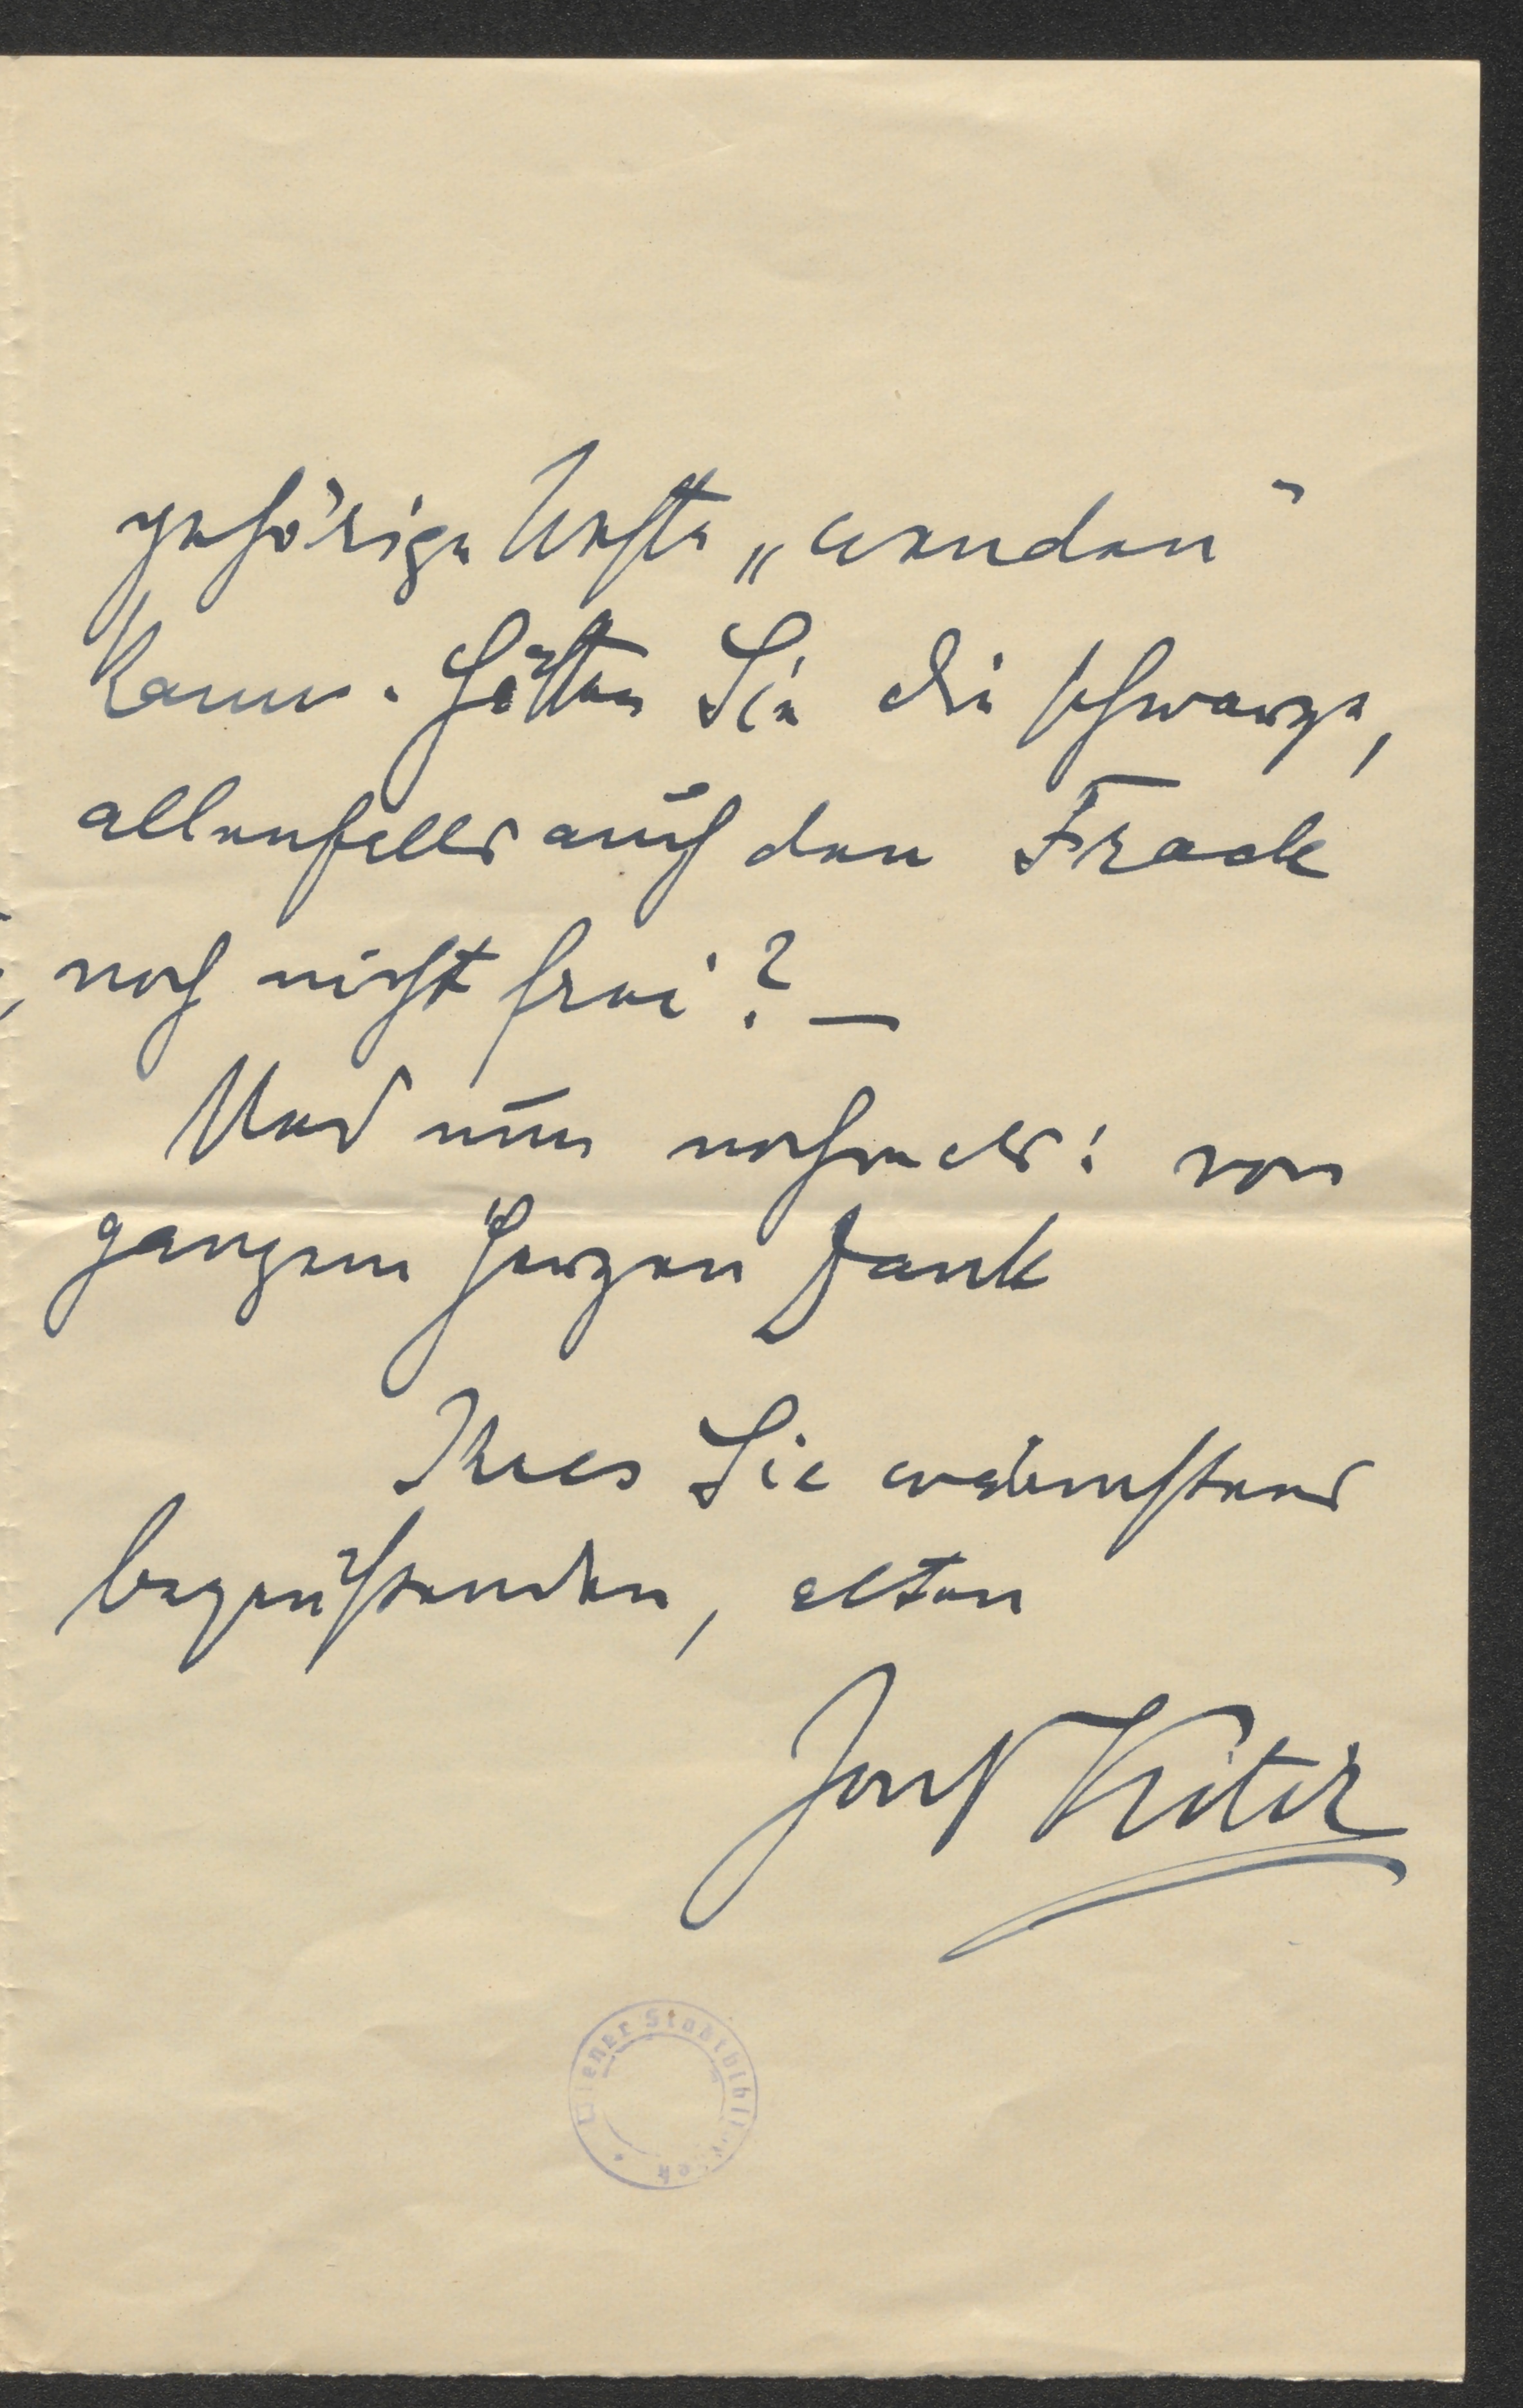 gehörige Weste „wenden“
kann. Hätten Sie die schwarze,
allenfalls auch den Frack
noch nicht frei? —
Und nun nochmals: von
ganzem Herzen Dank
Ihres Sie wärmstens
begrüßenden, alten
Josef Kitir
Wiener Stadtbibliothek